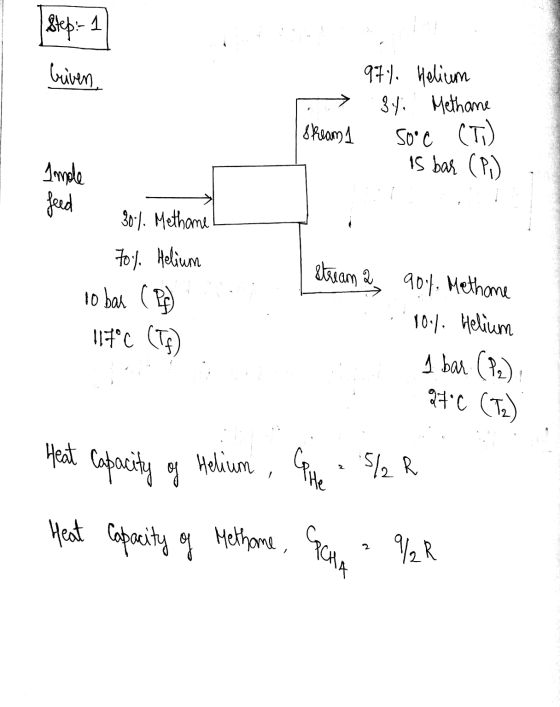 Step:- 1
Given,
97%. Helium
3%. Methane
Stream 1
50°C (T₁)
15 bar (P₁)
1 mole
feed
30%. Methane
70%. Helium
10 bar (Pf)
117°C (Tf)
Stream 2
90%. Methane
10%. Helium
1 bar (P₂)
27°C (T₂)
Heat Capacity of Helium, CpHe = 5/2 R
Heat Capacity of Methane, CpCH₄ = 9/2 R